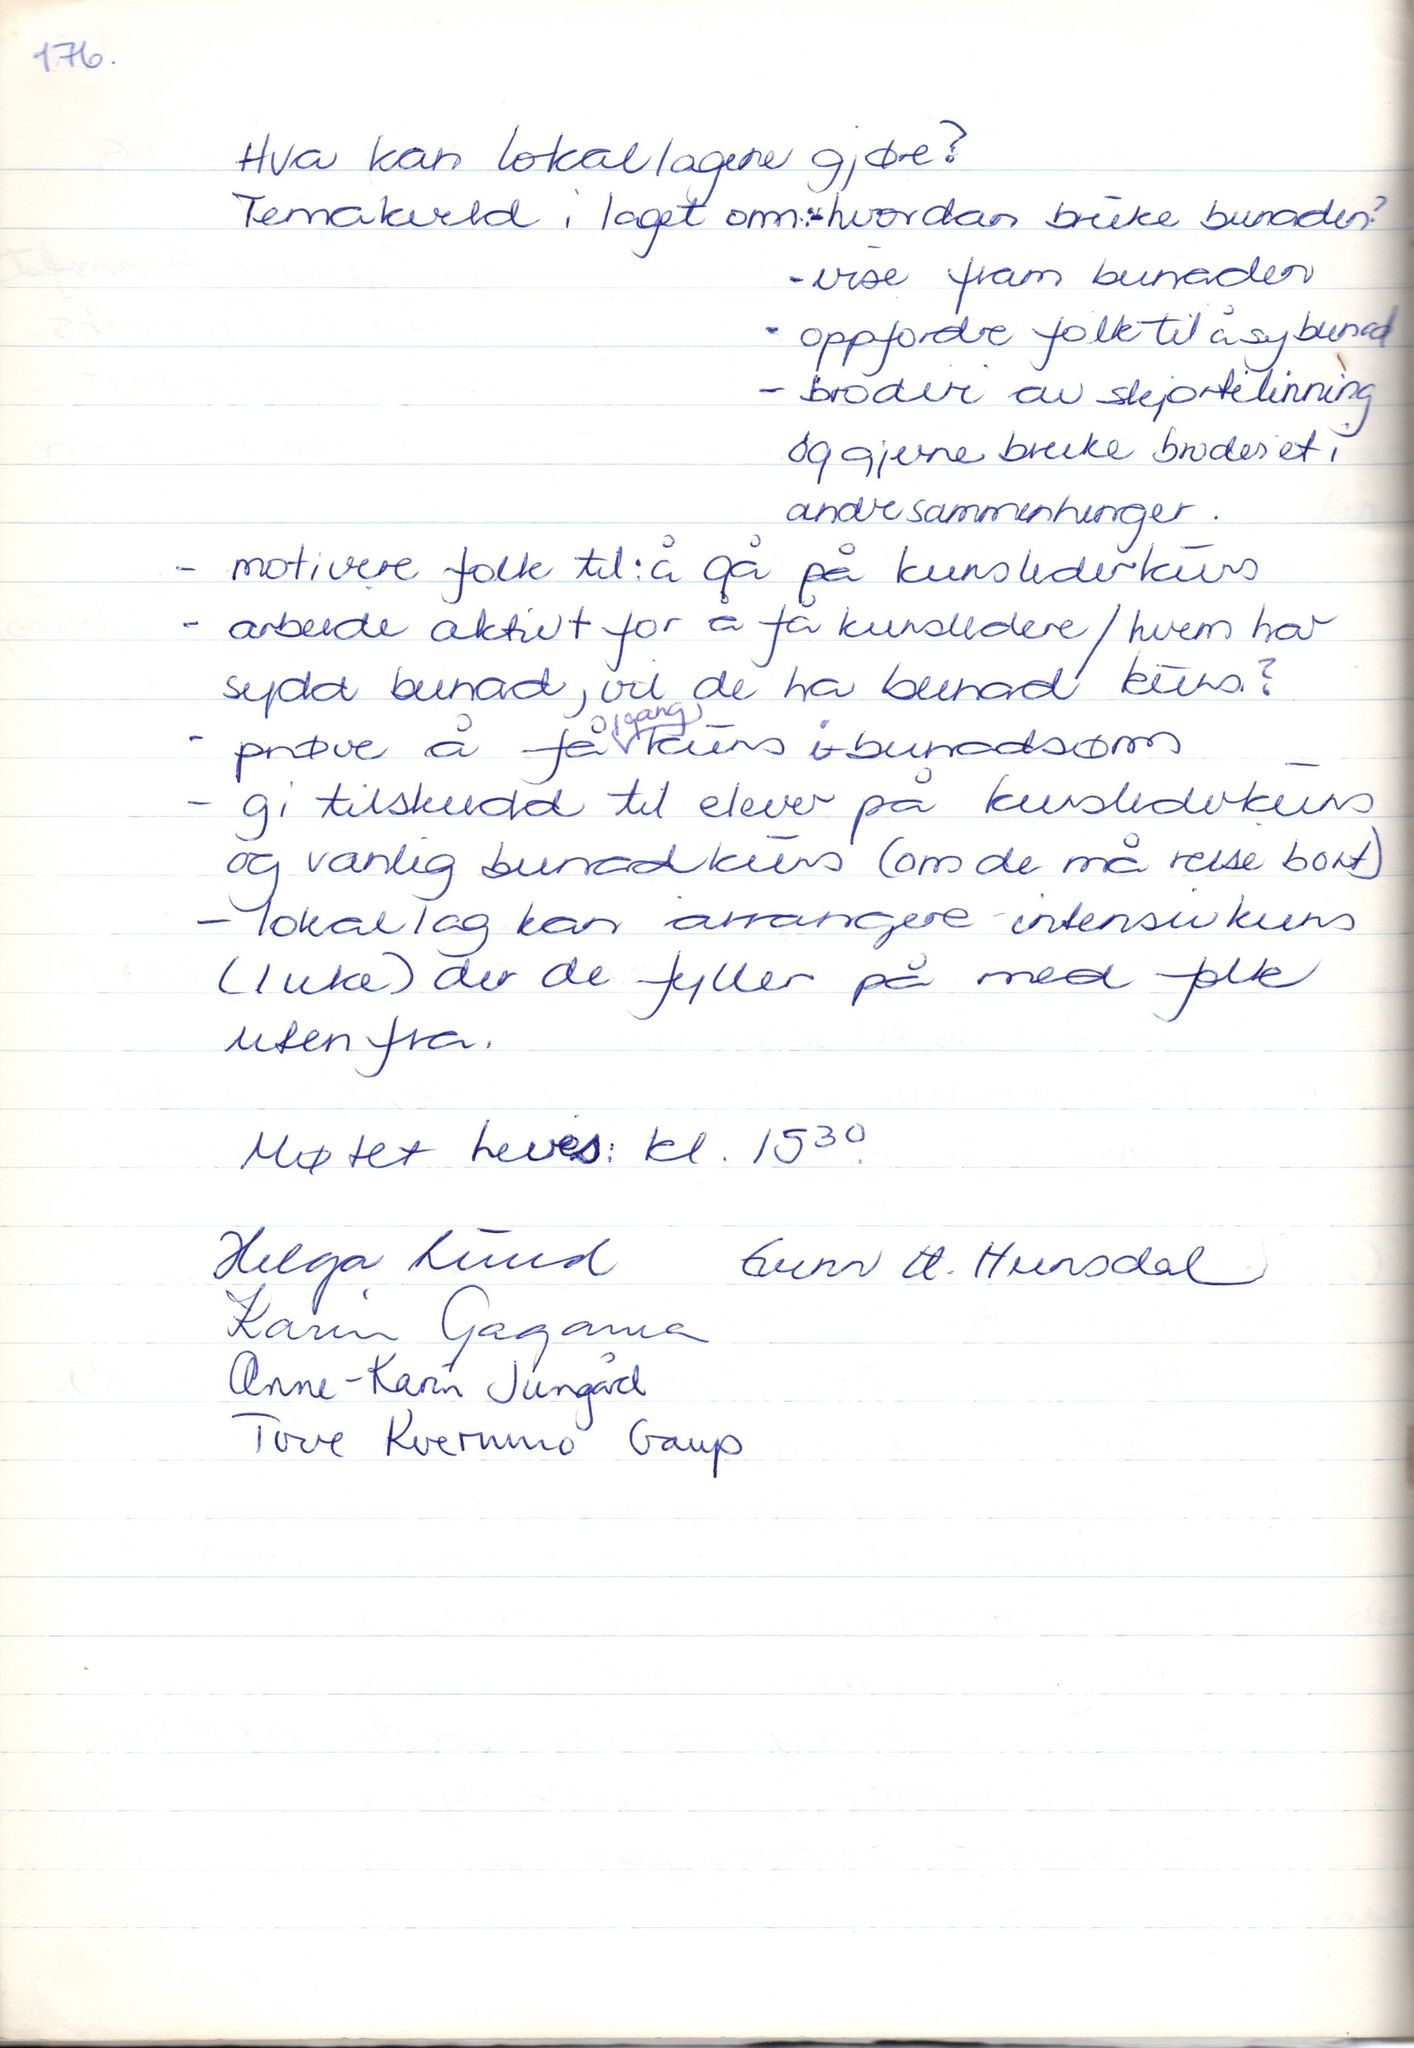 176.
Hva kan lokallagene gjøre?
Temakveld i laget om:-hvordan bruke bunaden?
-vise fram bunaden
- oppfordre folk til å sy bunad
- broderi av skjortelinning
og gjerne bruke broderiet i
andre sammenhenger.
- motivere folk til: å gå på kurslederkurs
- arbeide aktivt for å få kursledere/hvem har
sydd bunad, vil de ha bunad kurs?
- prøve å få igang kurs i bunadsøm
- gi tilskudd til elever på kurslederkurs
og vanlig bunadkurs (om de må reise bort)
- lokallag kan arrangere intensivkurs
(1 uke) der de fyller på med folk
utenfra.
Møtet heves: kl. 15 30.
Helga Lund Gunn H. Hunsdal
Karin Gagama
Anne-Karin Jungård
Tove Kvernmo Gaup